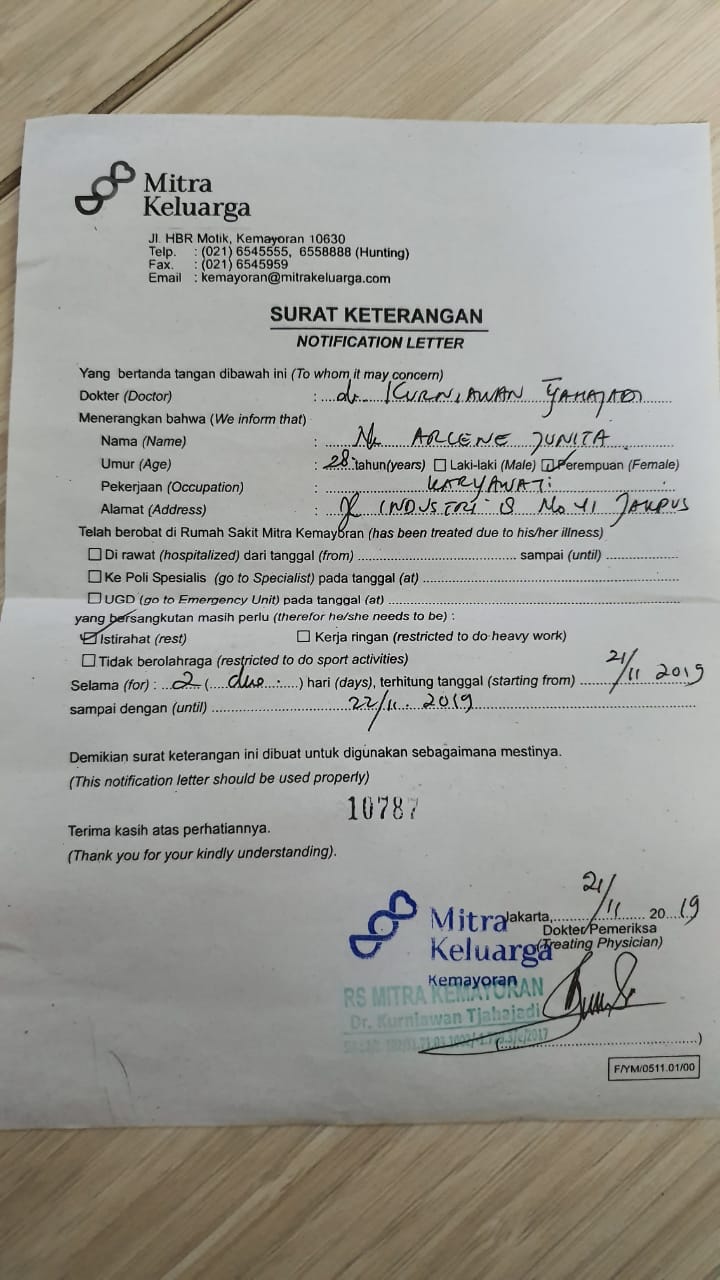 Mitra
Keluarga
Jl. HBR Motik, Kemayoran 10630
Telp. : (021) 6545555, 6558888 (Hunting)
Fax. : (021) 6545959
Email : kemayoran@mitrakeluarga.com
SURAT KETERANGAN
NOTIFICATION LETTER
Yang bertanda tangan dibawah ini (To whom it may concern)
Dokter (Doctor) : dr. KURNIAWAN TJAHAJADI
Menerangkan bahwa (We inform that)
Nama (Name) : ARLENE JUNITA
Umur (Age) : 28 tahun(years) Laki-laki (Male) Perempuan (Female)
Pekerjaan (Occupation) : KARYAWATI
Alamat (Address) : Jl INDUSTRI 8 No 41 JAKPUS
Telah berobat di Rumah Sakit Mitra Kemayoran (has been treated due to his/her illness)
Di rawat (hospitalized) dari tanggal (from) ........ sampai (until) ........
Ke Poli Spesialis (go to Specialist) pada tanggal (at) ........
UGD (go to Emergency Unit) pada tanggal (at) ........
yang bersangkutan masih perlu (therefor he/she needs to be) :
Istirahat (rest) Kerja ringan (restricted to do heavy work)
Tidak berolahraga (restricted to do sport activities)
Selama (for) : 2 (dua) hari (days), terhitung tanggal (starting from) 21/11 2019
sampai dengan (until) 22/11. 2019
Demikian surat keterangan ini dibuat untuk digunakan sebagaimana mestinya.
(This notification letter should be used properly)
10787
Terima kasih atas perhatiannya.
(Thank you for your kindly understanding).
Jakarta, 21/11 2019
Mitra
Dokter Pemeriksa
Keluarga
(Treating Physician)
Kemayoran
RS MITRA KEMAYORAN
Dr. Kurniawan Tjahajadi
(........)
F/YM/0511.01/00